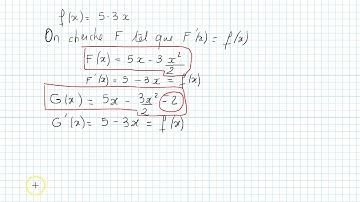 f(x) = 5-3x
On cherche F tel que F'(x) = f(x)
F(x) = 5x - 3 x²/2
F'(x) = 5 - 3x = f(x)
G(x) = 5x - 3x²/2 - 2
G'(x) = 5 - 3x = f(x)